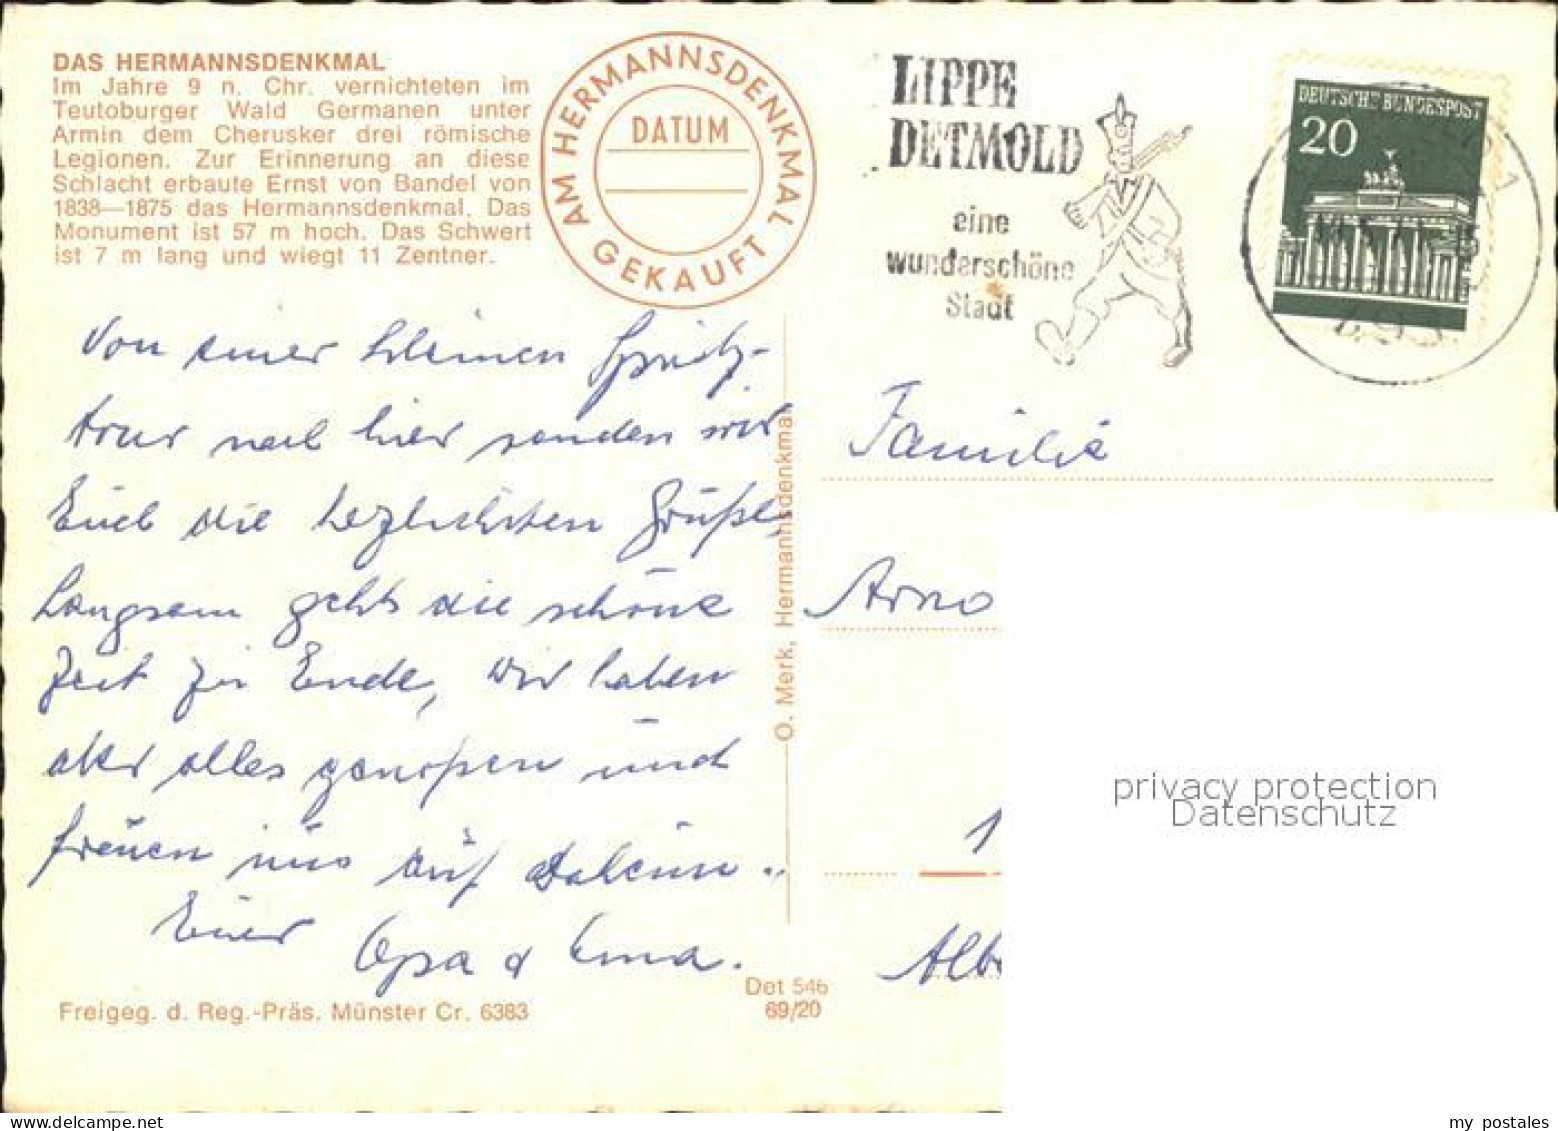 DAS HERMANNSDENKMAL
Im Jahre 9 n. Chr. vernichteten im
Teutoburger Wald Germanen unter
Armin dem Cherusker drei römische
Legionen. Zur Erinnerung an diese
Schlacht erbaute Ernst von Bandel von
1838—1875 das Hermannsdenkmal. Das
Monument ist 57 m hoch. Das Schwert
ist 7 m lang und wiegt 11 Zentner.
AM HERMANNSDENKMAL
GEKAUFT
DATUM
LIPPE
DETMOLD
eine
wunderschöne
Stadt
DEUTSCHE BUNDESPOST
20
Von einer kleinen Spritz-
tour nach hier senden wir
Euch die herzlichsten Grüße,
Langsam geht die schöne
Zeit zu Ende, wir haben
aber alles genoßen und
freuen uns auf Daheim..
Euer Opa & Oma.
O. Merk, Hermannsdenkmal
Familie
Arno
1
Albe
Det 546
69/20
Freigeg. d. Reg.-Präs. Münster Cr. 6383
privacy protection
Datenschutz
my postales